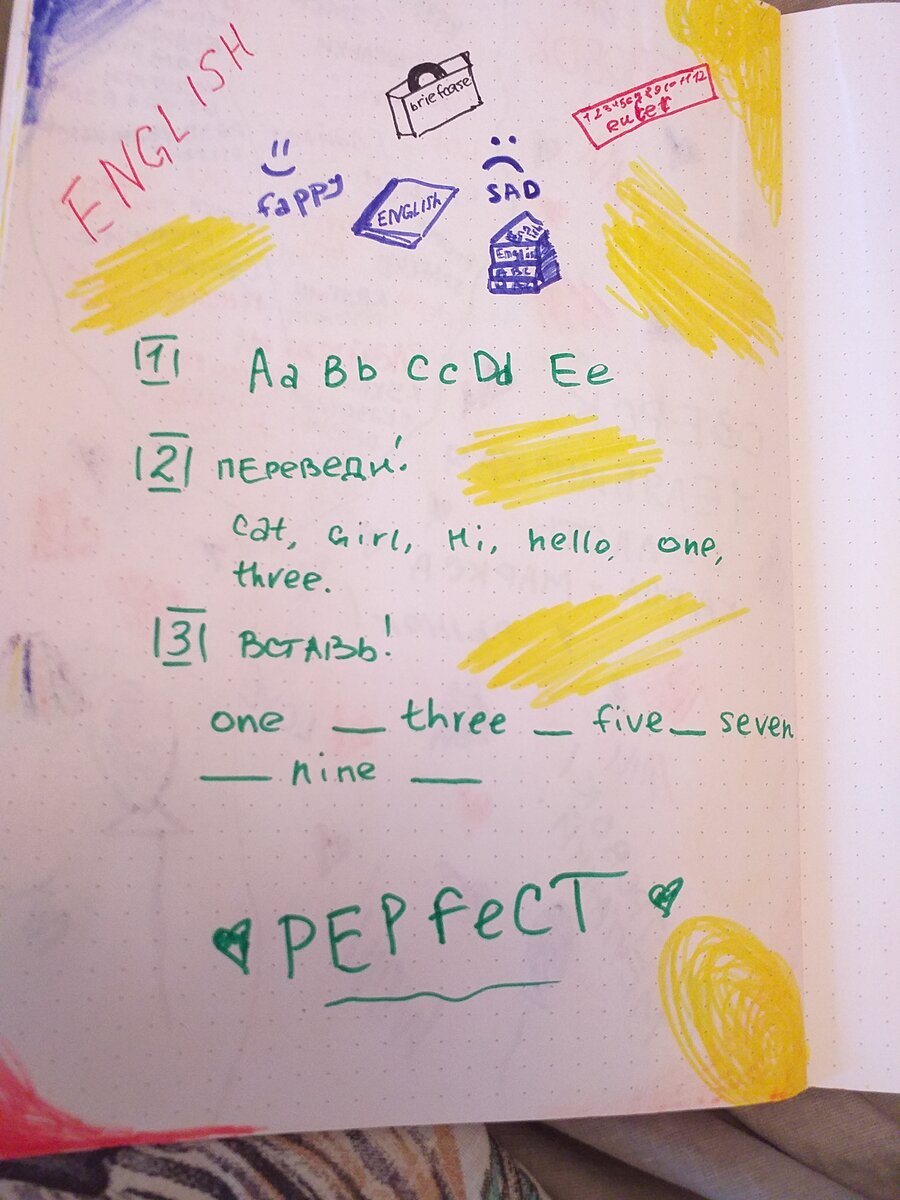 ENGLISH
briefcase
1 2 3 4 5 6 7 8 9 10 11 12
fappy
ENGLISH
SAD
Englis
ABC
|1| Aa Bb Cc Dd Ee
|2| ПЕРЕВЕДИ!
cat, Girl, Hi, hello, one,
three.
|3| ВСТАВЬ!
one __ three __ five __ seven
__ nine __
PEPfeCT